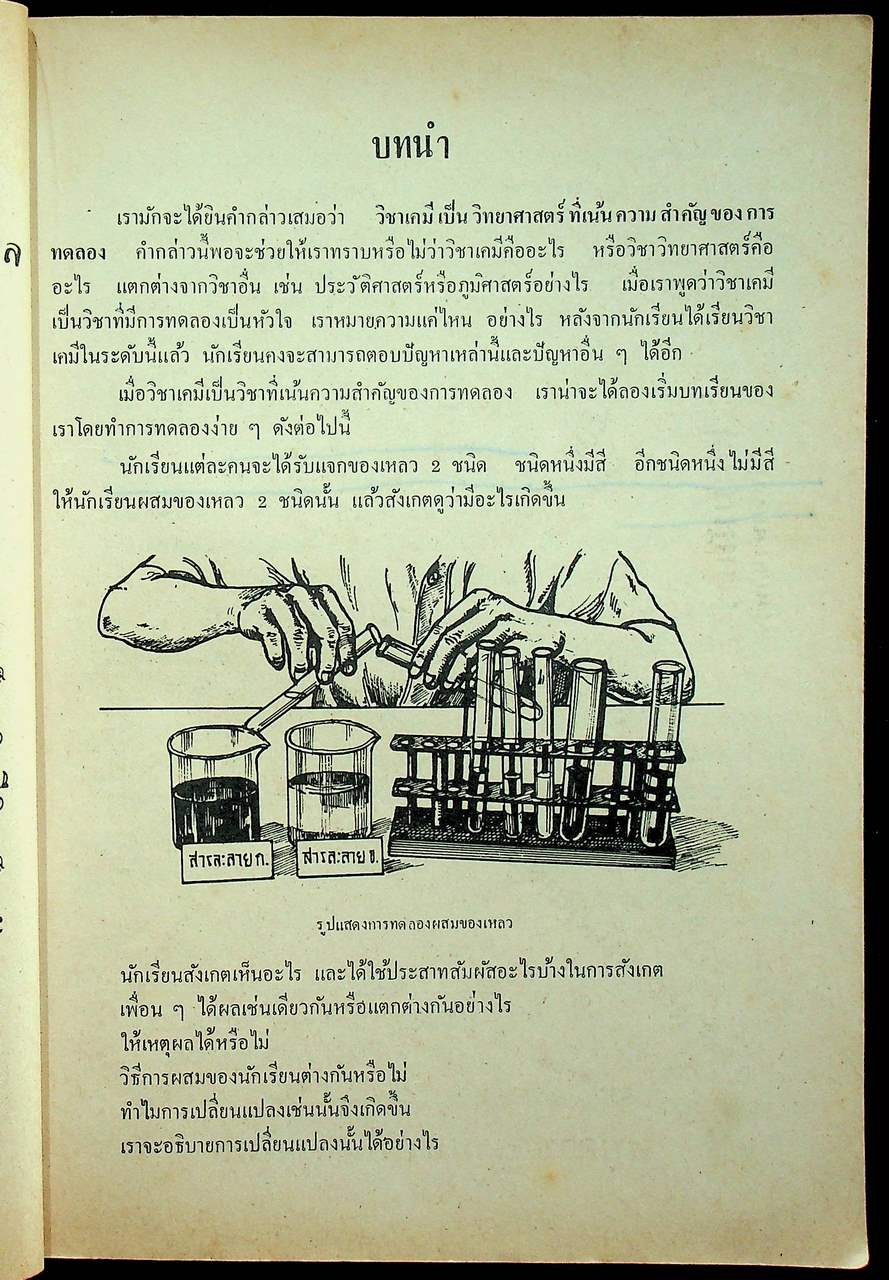 บทนำ
เรามักจะได้ยินคำกล่าวเสมอว่า วิชาเคมี เป็น วิทยาศาสตร์ ที่เน้น ความ สำคัญ ของ การ
ทดลอง คำกล่าวนี้พอจะช่วยให้เราทราบหรือไม่ว่าวิชาเคมีคืออะไร หรือวิชาวิทยาศาสตร์คือ
อะไร แตกต่างจากวิชาอื่น เช่น ประวัติศาสตร์หรือภูมิศาสตร์อย่างไร เมื่อเราพูดว่าวิชาเคมี
เป็นวิชาที่มีการทดลองเป็นหัวใจ เราหมายความแค่ไหน อย่างไร หลังจากนักเรียนได้เรียนวิชา
เคมีในระดับนี้แล้ว นักเรียนคงจะสามารถตอบปัญหาเหล่านี้และปัญหาอื่น ๆ ได้อีก
เมื่อวิชาเคมีเป็นวิชาที่เน้นความสำคัญของการทดลอง เราน่าจะได้ลองเริ่มบทเรียนของ
เราโดยทำการทดลองง่าย ๆ ดังต่อไปนี้
นักเรียนแต่ละคนจะได้รับแจกของเหลว 2 ชนิด ชนิดหนึ่งมีสี อีกชนิดหนึ่ง ไม่มีสี
ให้นักเรียนผสมของเหลว 2 ชนิดนั้น แล้วสังเกตดูว่ามีอะไรเกิดขึ้น
สารละลาย ก.
สารละลาย ข.
รูปแสดงการทดลองผสมของเหลว
นักเรียนสังเกตเห็นอะไร และได้ใช้ประสาทสัมผัสอะไรบ้างในการสังเกต
เพื่อน ๆ ได้ผลเช่นเดียวกันหรือแตกต่างกันอย่างไร
ให้เหตุผลได้หรือไม่
วิธีการผสมของนักเรียนต่างกันหรือไม่
ทำไมการเปลี่ยนแปลงเช่นนั้นจึงเกิดขึ้น
เราจะอธิบายการเปลี่ยนแปลงนั้นได้อย่างไร